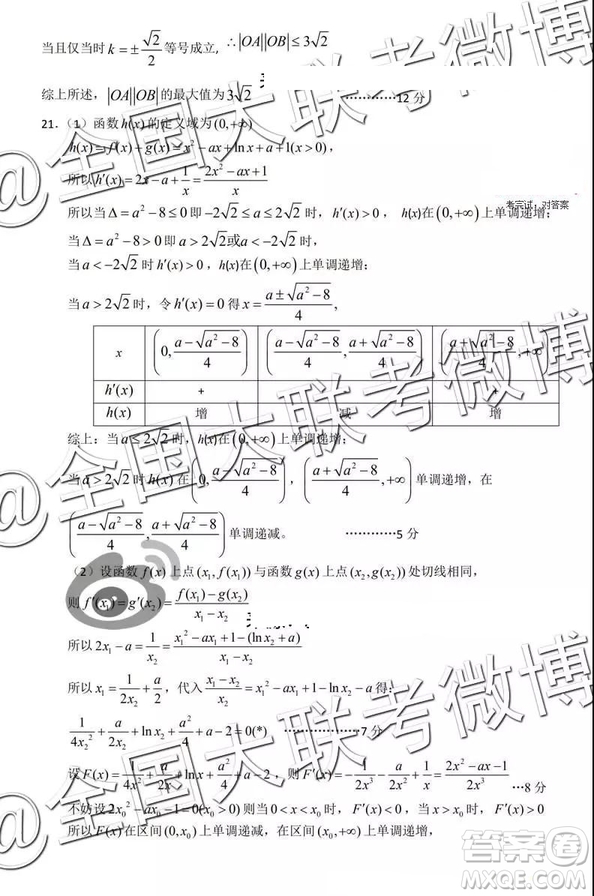 当且仅当时 k = ±√2/2 等号成立, ∴|OA||OB| ≤ 3√2
综上所述，|OA||OB| 的最大值为 3√2 …………12 分
21.（1）函数 h(x) 的定义域为 (0,+∞)
h(x) = f(x) + g(x) = x² - ax + ln x + a + 1(x > 0),
所以 h'(x) = 2x - a + 1/x = (2x² - ax + 1)/x
考完试，对答案
所以当 Δ = a² - 8 ≤ 0 即 -2√2 ≤ a ≤ 2√2 时，h'(x) > 0，h(x)在 (0,+∞) 上单调递增;
当 Δ = a² - 8 > 0 即 a > 2√2 或 a < -2√2 时，
当 a < -2√2 时 h'(x) > 0，h(x)在 (0,+∞) 上单调递增;
当 a > 2√2 时，令 h'(x) = 0 得 x = (a ± √(a² - 8))/4,
x (0, (a - √(a² - 8))/4) ((a - √(a² - 8))/4, (a + √(a² - 8))/4) ((a + √(a² - 8))/4, +∞)
h'(x) + - +
h(x) 增 减 增
综上：当 a ≤ 2√2 时，h(x)在 (0,+∞) 上单调递增;
当 a > 2√2 时 h(x) 在 (0, (a - √(a² - 8))/4)，((a + √(a² - 8))/4, +∞) 单调递增，在
((a - √(a² - 8))/4, (a + √(a² - 8))/4) 单调递减。 …………5 分
（2）设函数 f(x) 上点 (x₁, f(x₁)) 与函数 g(x) 上点 (x₂, g(x₂)) 处切线相同，
则 f'(x₁) = g'(x₂) = (f(x₁) - g(x₂))/(x₁ - x₂)
所以 2x₁ - a = 1/x₂ = (x₁² - ax₁ + 1 - (ln x₂ + a))/(x₁ - x₂)
所以 x₁ = 1/(2x₂) + a/2，代入 (x₁ - x₂)/x₂ = x₁² - ax₁ + 1 - ln x₂ - a 得：
1/(4x₂²) + a/(2x₂) + ln x₂ + a²/4 + a - 2 = 0(*) ………………7 分
设 F(x) = 1/(4x²) + a/(2x) + ln x + a²/4 + a - 2，则 F'(x) = -1/(2x³) - a/(2x²) + 1/x = (2x² - ax - 1)/(2x³) …8 分
不妨设 2x₀² - ax₀ - 1 = 0(x₀ > 0) 则当 0 < x < x₀ 时，F'(x) < 0，当 x > x₀ 时，F'(x) > 0
所以 F(x) 在区间 (0, x₀) 上单调递减，在区间 (x₀, +∞) 上单调递增，
@全国大联考微博
@全国大联考微博
@全国大联考微博
答案圈
MXQE.COM